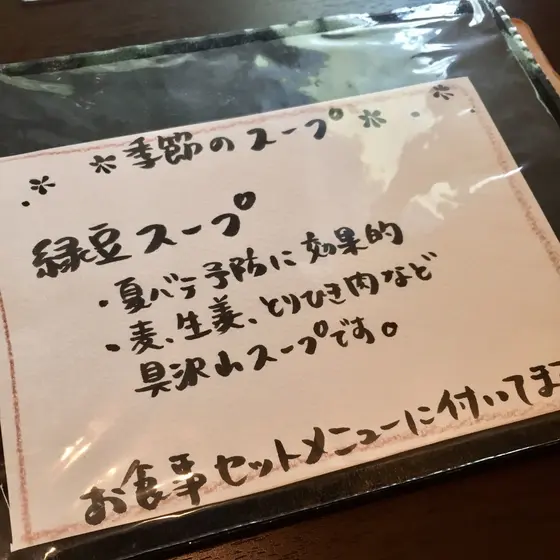 ＊季節のスープ＊
緑豆スープ
・夏バテ予防に効果的
・麦、生姜、とりひき肉など
具沢山スープです。
お食事セットメニューに付いてま